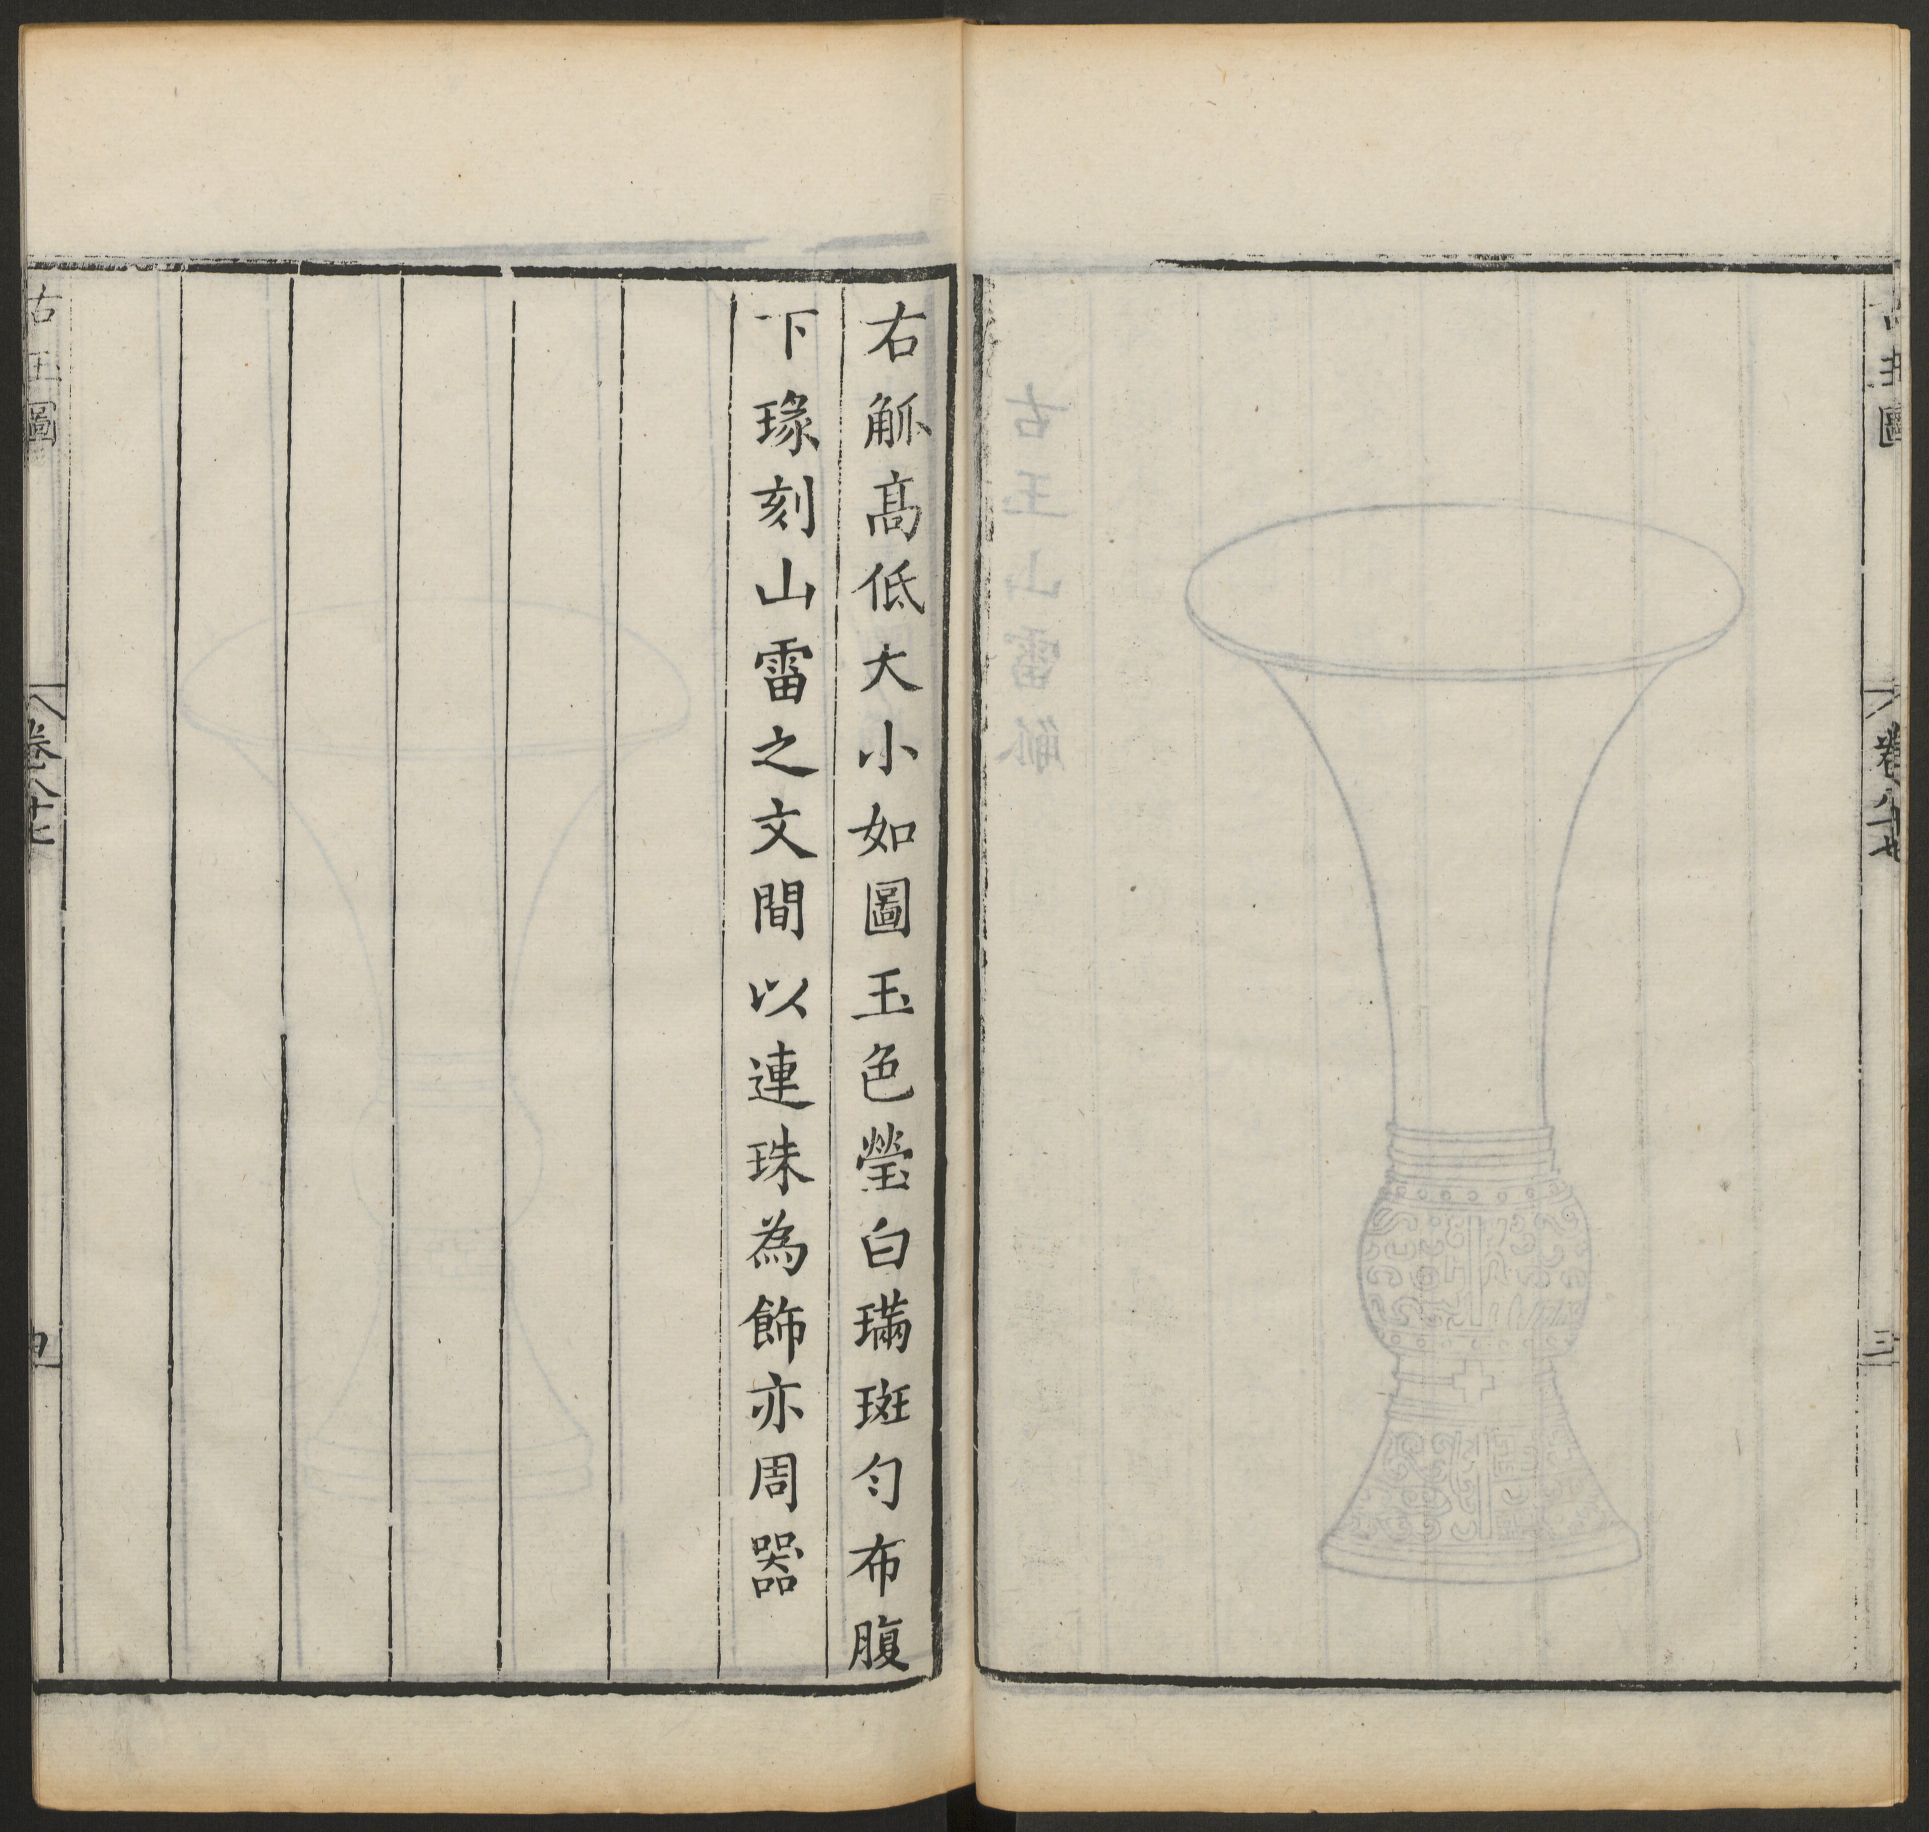 古玉圖
卷八十七
三
古玉山雷觚
右觚髙低大小如圖玉色瑩白璊斑勻布腹
下瑑刻山雷之文間以連珠為飾亦周器
古玉圖
卷八十七